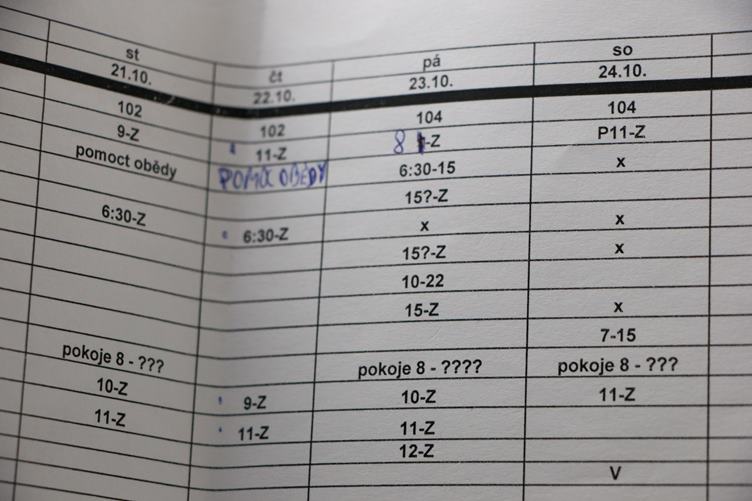 st čt pá so
21.10. 22.10. 23.10. 24.10.
102 102 104 104
9-Z 11-Z 8 -Z P11-Z
pomoct obědy POMOC OBĚDY 6:30-15 x
15?-Z
6:30-Z 6:30-Z x x
15?-Z x
10-22
15-Z x
7-15
pokoje 8 - ??? pokoje 8 - ???? pokoje 8 - ???
10-Z 9-Z 10-Z 11-Z
11-Z 11-Z 11-Z
12-Z
V